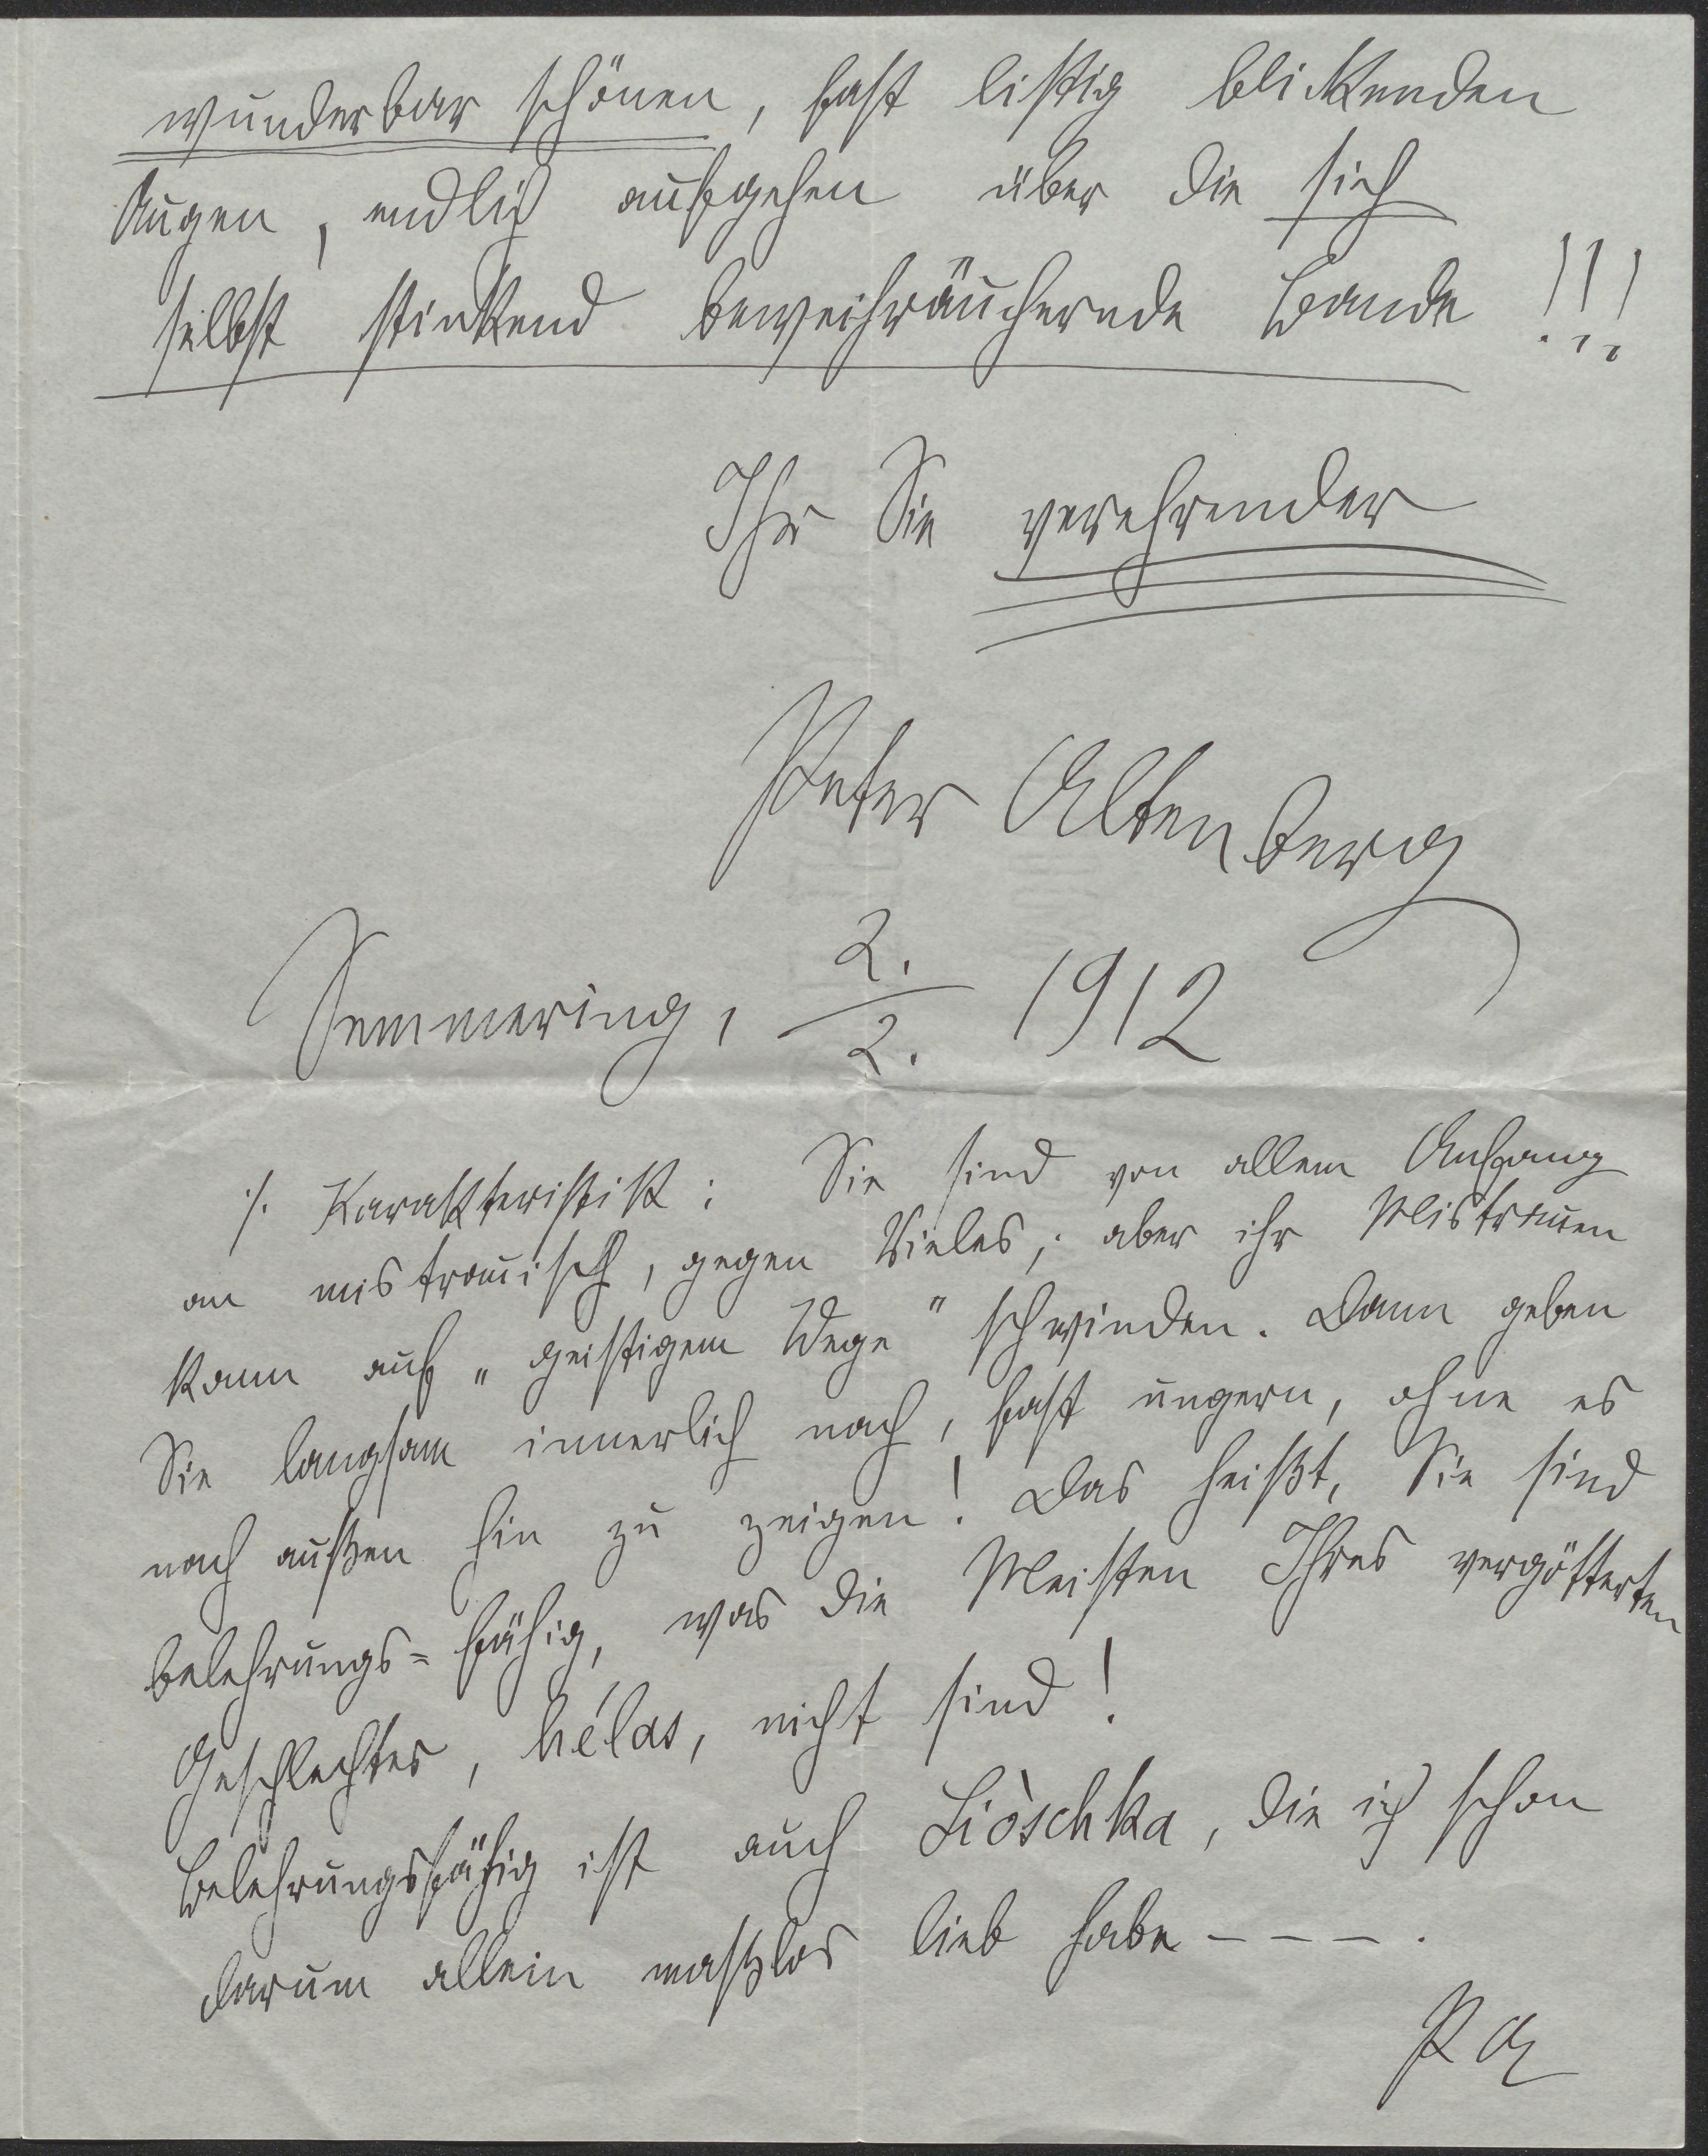 wunderbar schönen, fast listig blickenden
Augen, endlich aufgehen über die sich
selbst stinkend beweihräuchernde Bande!!!
Ihr Sie verehrender
Peter Altenberg
Semmering, 2./2. 1912
·/. Karakteristik: Sie sind von allem Anfang
an mistrauisch, gegen Vieles; aber ihr Mistrauen
kann auf „geistigem Wege" schwinden. Dann geben
Sie langsam innerlich nach, fast ungern, ohne es
nach außen hin zu zeigen! Das heißt, Sie sind
belehrungs=fähig, was die Meisten Ihres vergötterten
Geschlechtes, hélas, nicht sind!
Belehrungsfähig ist auch Liòschka, die ich schon
darum allein maßlos lieb habe – – – –.
PA